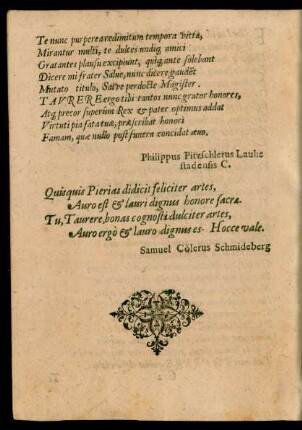 Te nunc purpereâ redimitum tempora vittâ,
Mirantur multi, te dulces undiq; amici
Gratantes plausu excipiunt, quiq; ante solebant
Dicere mi frater Salve, nunc dicere gaudẽt
Mutato titulo, Salve perdocte Magister.
TAURERE ergo tibi tantos nunc grator honores,
Atq; precor superûm Rex & pater optimus addat
Virtuti pia fata tuæ, præscribat honori
Famam, quæ nullo post funera concidat ævo.
Philippus Pitzschlerus Laube
stadensis C.
Quisquis Pierias didicit feliciter artes,
Auro est & lauri dignus honore sacræ.
Tu, Taurere, bonas cognosti dulciter artes,
Auro ergò & lauro dignus es. Hocce vale.
Samuel Cölerus Schmideberg